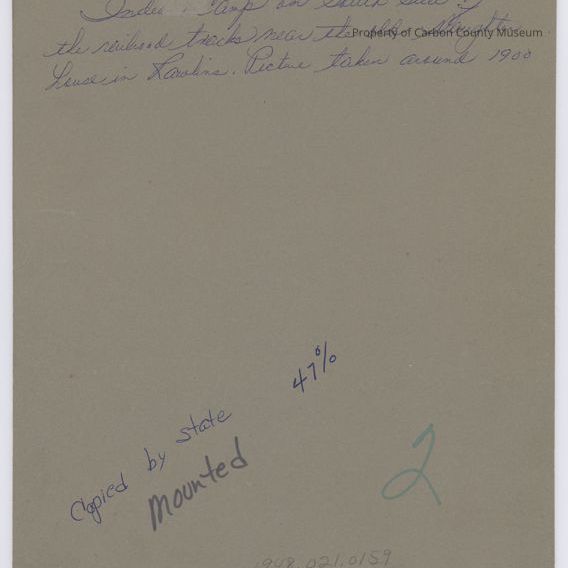 Indian Camp on South Side of
the railroad tracks near the old
house in Rawlins. Picture taken around 1900
Property of Carbon County Museum
47%
Copied by state
Mounted
2
1948.021.0159